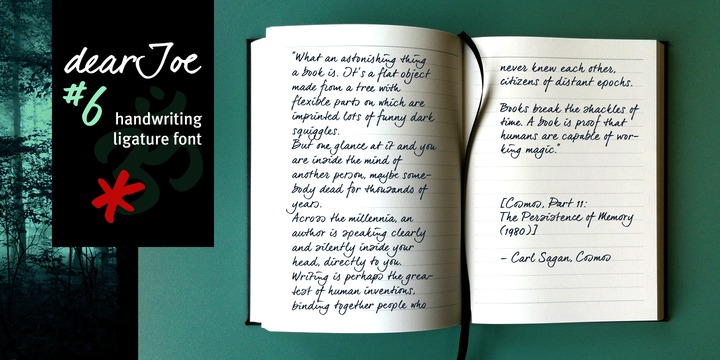 dearJoe
#6
handwriting
ligature font
"What an astonishing thing
a book is. It's a flat object
made from a tree with
flexible parts on which are
imprinted lots of funny dark
squiggles.
But one glance at it and you
are inside the mind of
another person, maybe some-
body dead for thousands of
years.
Across the millennia, an
author is speaking clearly
and silently inside your
head, directly to you.
Writing is perhaps the grea-
test of human inventions,
binding together people who
never knew each other,
citizens of distant epochs.
Books break the shackles of
time. A book is proof that
humans are capable of wor-
king magic."
[Cosmos, Part 11:
The Persistence of Memory
(1980)]
– Carl Sagan, Cosmos